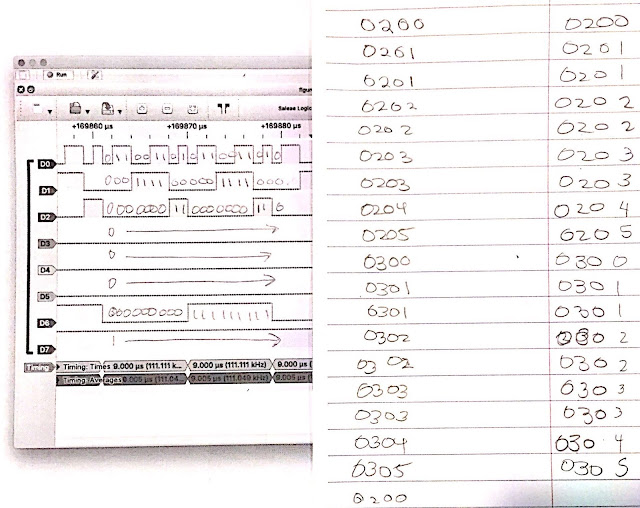 Run
Saleae Logic
+169860 µs +169870 µs +169880 µs
D0
D1
D2
0
D3
0
D4
0
D5
D6
1
D7
Timing Timing: Times 9.000 µs (111.111 k... 9.000 µs (111.111 kHz) 9.000 µs (
Timing: Averages 9.005 µs (111.04... 9.005 µs (111.049 kHz) 9.005 µs (
0200 0200
0201 0201
0201 0201
0202 0202
0202 0202
0203 0203
0203 0203
0204 0204
0205 0205
0300 0300
0301 0301
0301 0301
0302 0302
0302 0302
0303 0303
0303 0303
0304 0304
0305 0305
0200